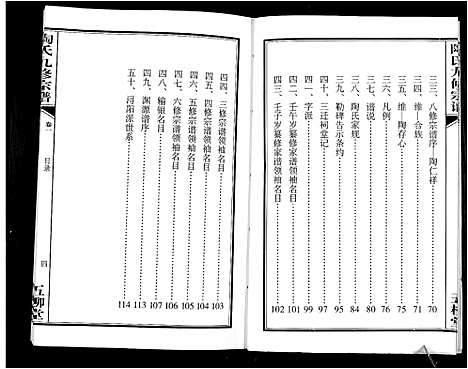 陶氏九修宗谱
三三、八修宗谱序·陶仁祥 70
三四、维·合族 71
三五、维·陶存心 75
三六、凡例 76
三七、谱说 80
三八、陶氏家规 84
三九、勒碑告示条约 95
四十、三迁祠堂记 97
四一、字派 99
四二、壬午岁纂修家谱领袖名目 101
四三、壬子岁纂修家谱领袖名目 102
四四、三修宗谱领袖名目 103
四五、四修宗谱领袖名目 104
四六、五修宗谱领袖名目 105
四七、六修宗谱领袖名目 106
四八、输银名目 107
四九、渊源谱序 113
五十、浔阳派世系 114
陶氏九修宗谱
卷一
目录
四
五柳堂